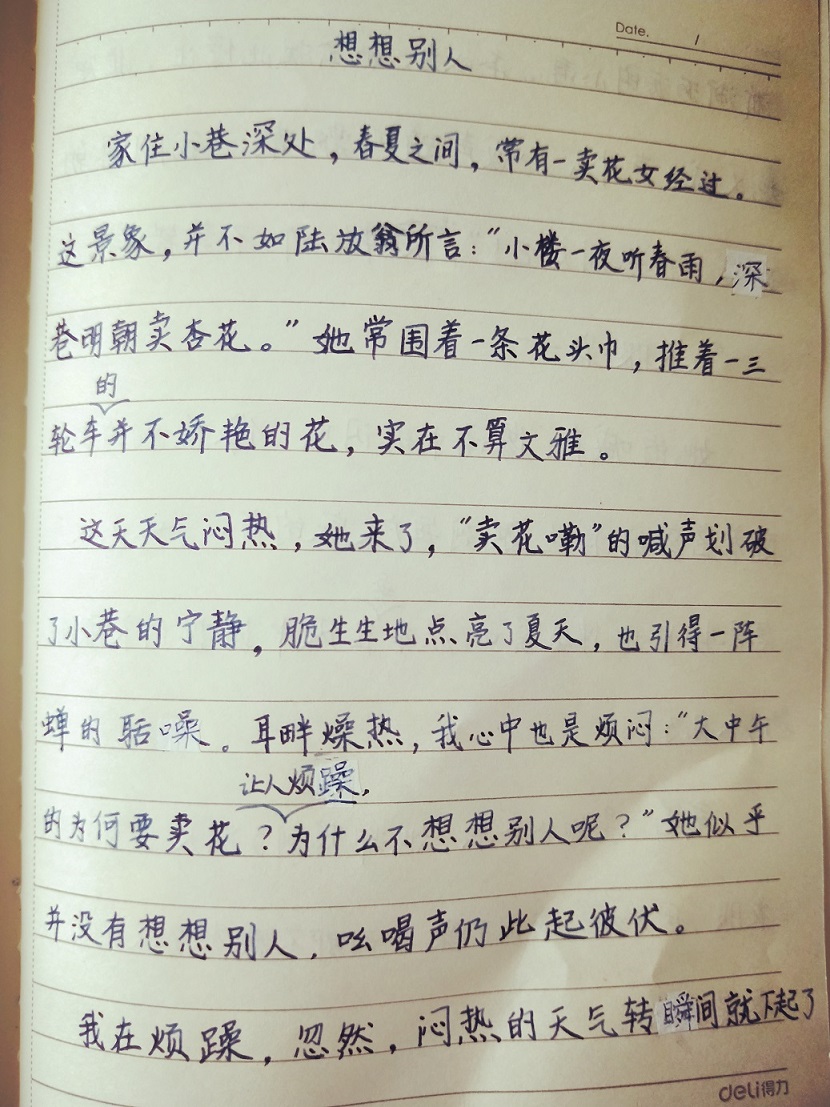 Date. /
想想别人
家住小巷深处，春夏之间，常有一卖花女经过。
这景象，并不如陆放翁所言：“小楼一夜听春雨，深
巷明朝卖杏花。”她常围着一条花头巾，推着一三
的
轮车并不娇艳的花，实在不算文雅。
这天天气闷热，她来了，“卖花嘞”的喊声划破
了小巷的宁静，脆生生地点亮了夏天，也引得一阵
蝉的聒噪。耳畔燥热，我心中也是烦闷：“大中午
让人烦躁，
的为何要卖花？为什么不想想别人呢？”她似乎
并没有想想别人，吆喝声仍此起彼伏。
我在烦躁，忽然，闷热的天气转瞬间就下起了
deli得力